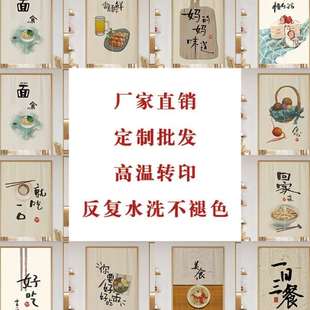 面
食
鲜
妈妈的
味道
面
食
厂家直销
定制批发
高温转印
反复水洗不褪色
就吃
一口
回家
吃饭
好吃
你要
好好
吃饭
美食
一日
三餐